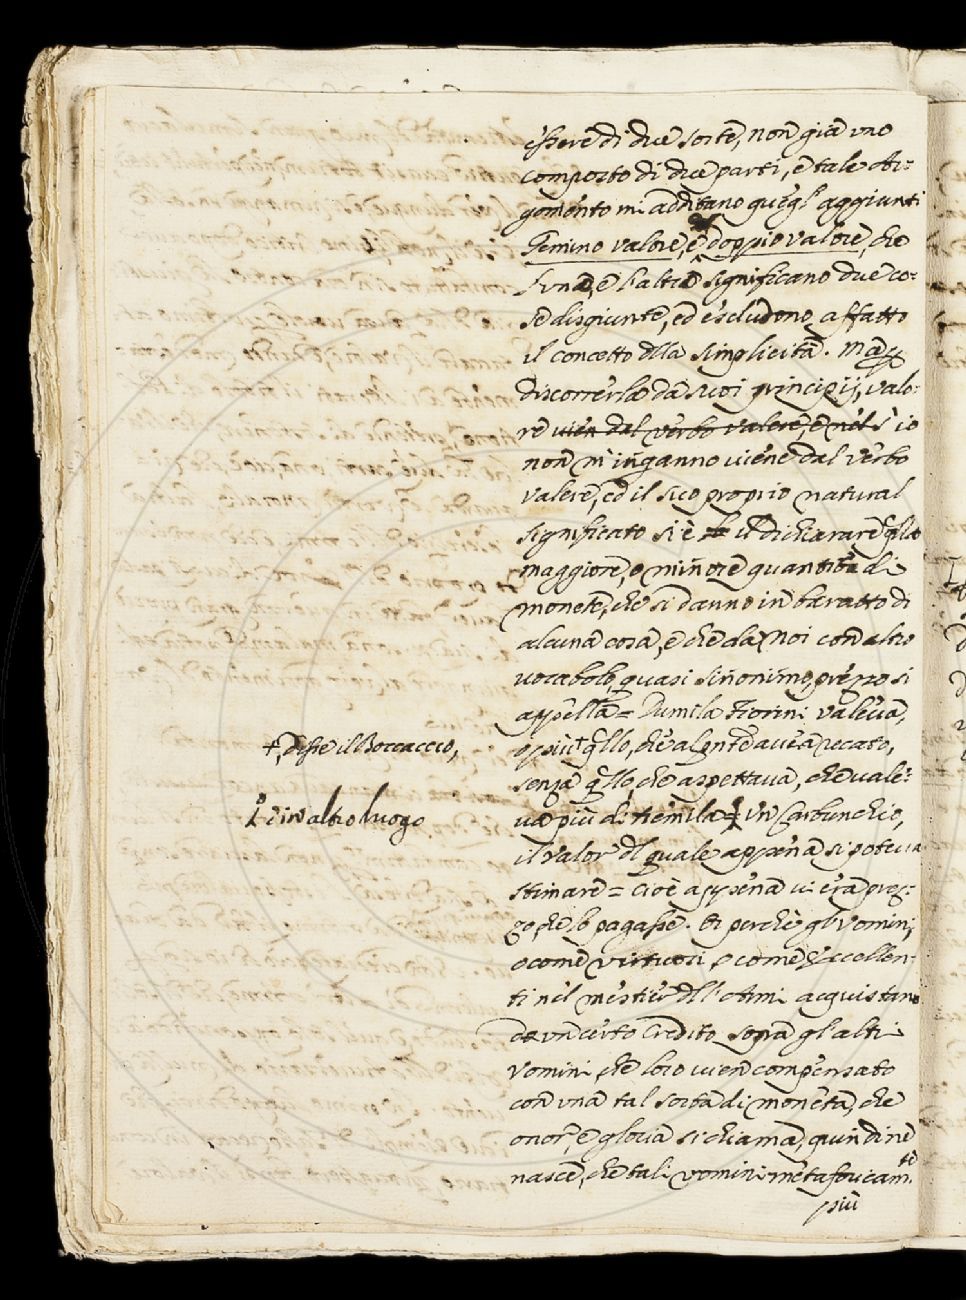 essere di due sorte, non già uno
composto di due parti, e tale Ar-
gomento mi additano quegl' aggiunti
Gemino valore, e doppio valore, che
l'una, e l'altra significano due co-
se disgiunte, ed escludono affatto
il concetto dlla simplicità. Ma p
discorrerla da suoi principij, valo-
re vien dal verbo valere, e nel s' io
non m' inganno viene dal verbo
valere, ed il suo proprio natural
significato si è il dichiarare qlla
maggiore, o minore quantità di
monete, che si danno in baratto di
alcuna cosa, e che da noi con altro
vocabolo, quasi sinonimo, prezzo si
appella = Dumila Fiorini valeva,
+, disse il Boccaccio,
o più + qllo, che al pnte aveva recato,
senza qllo, che aspettava, che vale-
va più di tremila = ‡ Un Carbunchio,
‡ e in altro luogo
il valor dl quale appena si poteva
stimare = cioè appena vi era prez-
zo, che lo pagasse. Et perchè gl' Uomini,
o come virtuosi, o come eccellen-
ti nel mestier dll' Armi acquistano
un certo Credito sopra gl' altri
Uomini, che loro vien compensato
con una tal sorta di moneta, che
onor, e gloria si chiama, quindi ne
nasce, che tali uomini metaforicamte
più